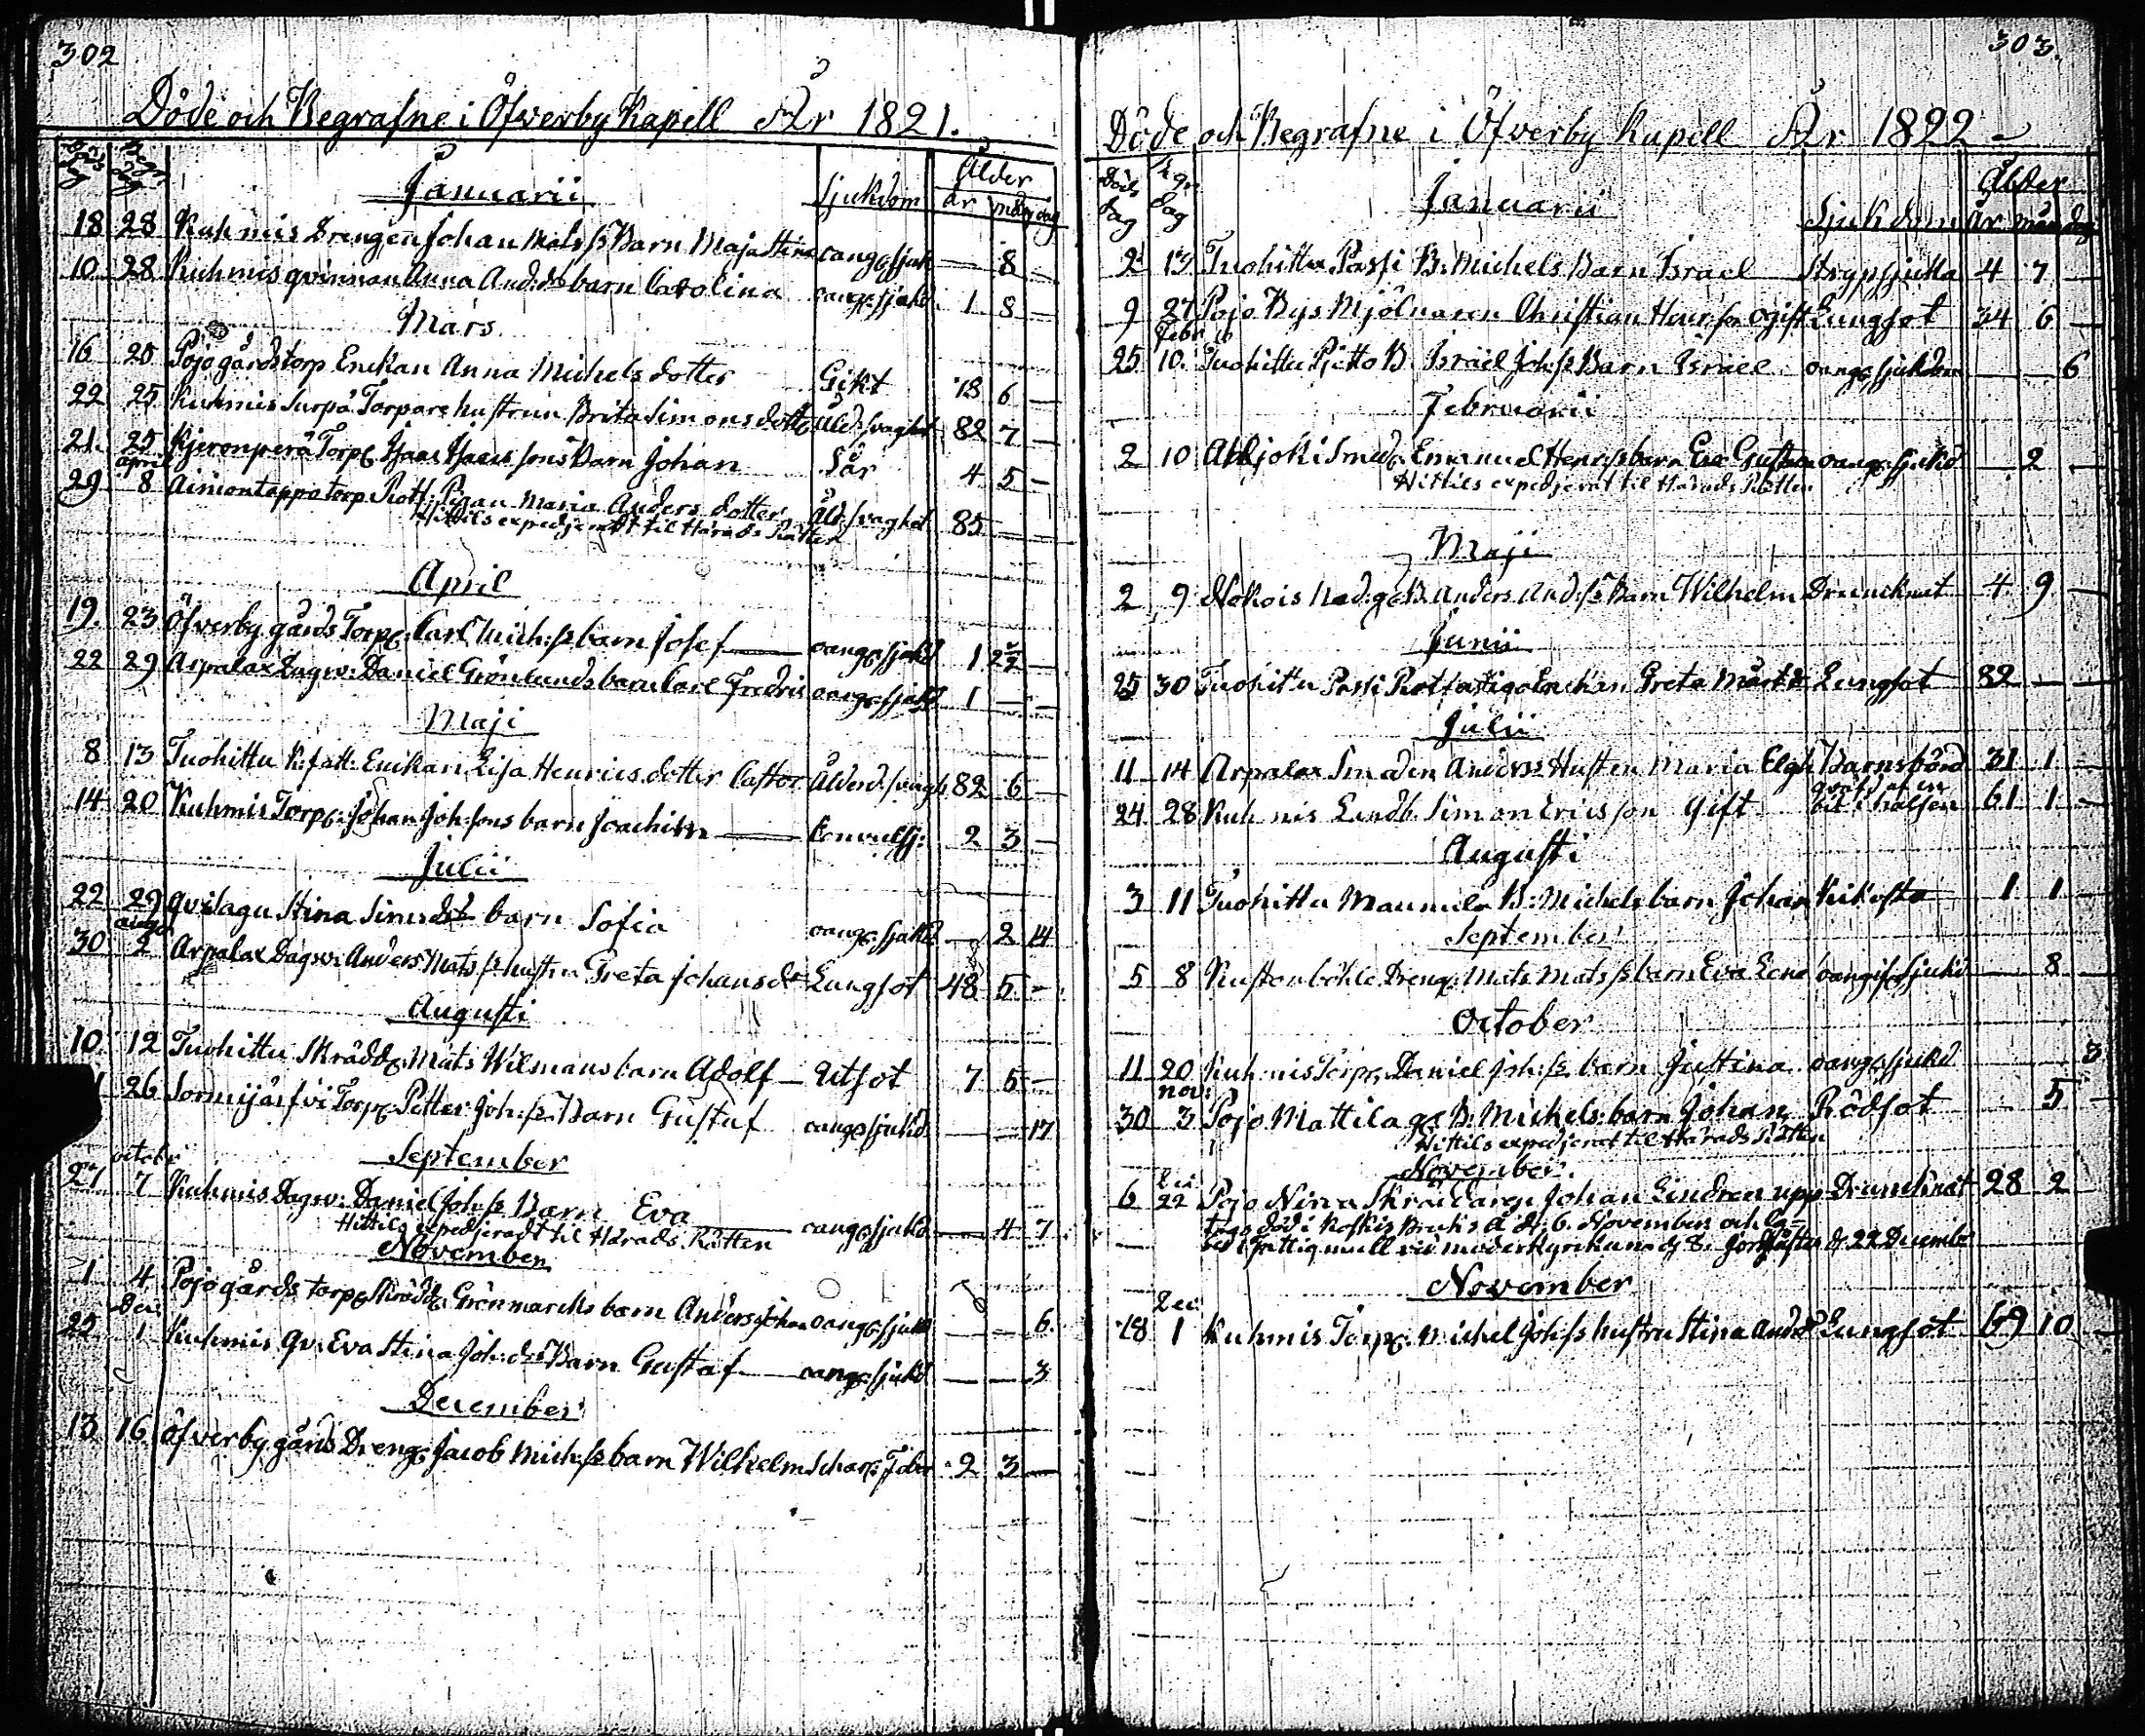 302
Döde och Begrafne i Öfverby Kapell År 1821.
Döds dag Begr. dag Januarii Sjukdom Ålder år mån dag
18 28 Kuhmis Drengen Johan Mats ss Barn Maja Stina oangs sjuk — 8 —
10 28 Kuhmis qvinnan Anna And:dr barn Carolina oangs sjukd. 1 8 —
Mars
16 25 Pojo gårdstorp Enckan Anna Michels dotter Gikt 78 6 —
22 25 Kuhmis Surpä Torpare hustrun Brita Simons dottr Åld:svaghet 82 7 —
21. 25 Kjeronperä Torp: Isaac Isaacs sons Barn Johan Sår 4 5 —
april
29 8 Aimontappo torp Rott: Pigan Maria Anders dotter Åld:svaghet 85 — —
Hittils expedjeradt til Härads Rätten
April
19. 23 Öfverby gårds Torp: Carl Mich:ss barn Josef — oangs sjukd 1 2½ —
22 29 Arpalax Dagsv: Daniel Grönlunds barn Carl Fredric oangs sjukd 1 — —
Maji
8 13 Tuohittu R:fatt: Enckan Lisa Henrics dotter Castor Ålderd.svagh 82 6 —
14 20 Kuhmis Torp: Johan Joh:sons barn Joachim — Convulsj: 2 3 —
Julii
22 29 Qvilagu Stina Sims dr barn Sofia oangs: sjukd — 2 14
augs
30 2 Arpalax Dagsv: Anders Mats ss hustru Greta Johans dr Lungsot 48 5 —
Augusti
10. 12 Tuohittu Skrädd: Mats Wilmans barn Adolf — Utsot 7 5 —
26 Sormijärfvi Torp: Petter Joh:ss Barn Gustaf oangs sjukd. — — 17
September
octobr
27 7 Kuhmis Dagsv: Daniel Joh:ss Barn Eva — oangs sjukd — 4 7
Hittils expedjeradt til Härads Rätten
November
1 4 Pojo gårds torp: Skrädd: Grönmarcks barn Anders Johan oangs sjukd — — 6.
Dec:
25 1 Kuhmis Qv: Eva Stina Joh:dr Barn Gustaf — oangs sjukd — — 3
December
13 16 Öfverby gårds Dreng: Jacob Mich:ss barn Wilhelm Scharl: Feber 2 3 —
303.
Döde och Begrafne i Öfverby Kapell År 1822 —
Döds dag Begr. dag Januarii Sjukdom Ålder År mån dag
2 13 Tuohittu Passi B: Michels Barn Israel Strypsjuka 4 7 —
9 27 Pojo Bys Mjölnaren Christian Henr:son ogift Lungsot 34 6 —
Febr
25 10. Tuohittu Pjetto B. Israel Joh:ss Barn Israel oangs sjukdom — — 6
Februarii
2 10 Smed: Emanuel Henr:ss barn Eva Gustava oangs: sjukd — 2 —
Hittils expedjerat til Härads Rätten
Maji
2 9 Nokois Ned:gd B. Anders And:ss Barn Wilhelm Drunknat 4 9 —
Junii
25 30 Tuohittu Passi Rotfattiga Enckan Greta Mårts dr Lungsot 82 — —
Julii
11 14 Arpalax Smeden Anderss Hustru Maria Elgh Barnsbörd 31 1 —
24 28 Kuhmis Landb. Simon Ericsson Gift i halsen 61 1 —
Augusti
3 11 Tuohittu Maunula B: Michels barn Johan Kikhosta 1 1 —
September
5 8 Kustonböhle Dreng: Mats Mats ss barn Eva Lena oangifs Sjukd — 8 —
October
11 20 Kuhmis Torp: Daniel Joh:ss barn Justina oangs sjukd 3
nov:
30 3 Pojo Mattila gd B: Michels: barn Johan Rödsot 5
Hittils expedjerat til Härads Rätten
November.
Dec:
6 22 Pojo Nina Skräddareg: Johan Lindren upp- Drunknat 28 2
togs död i Koskis Bruks å d: 6. November och la-
des i Fattigmull vid moderkyrkan d 8. Jordfästes d 22 Decembr
November
Dec:
18 1 Kuhmis Torp: Michel Joh:ss hustru Stina And:dr Lungsot 69 10 —